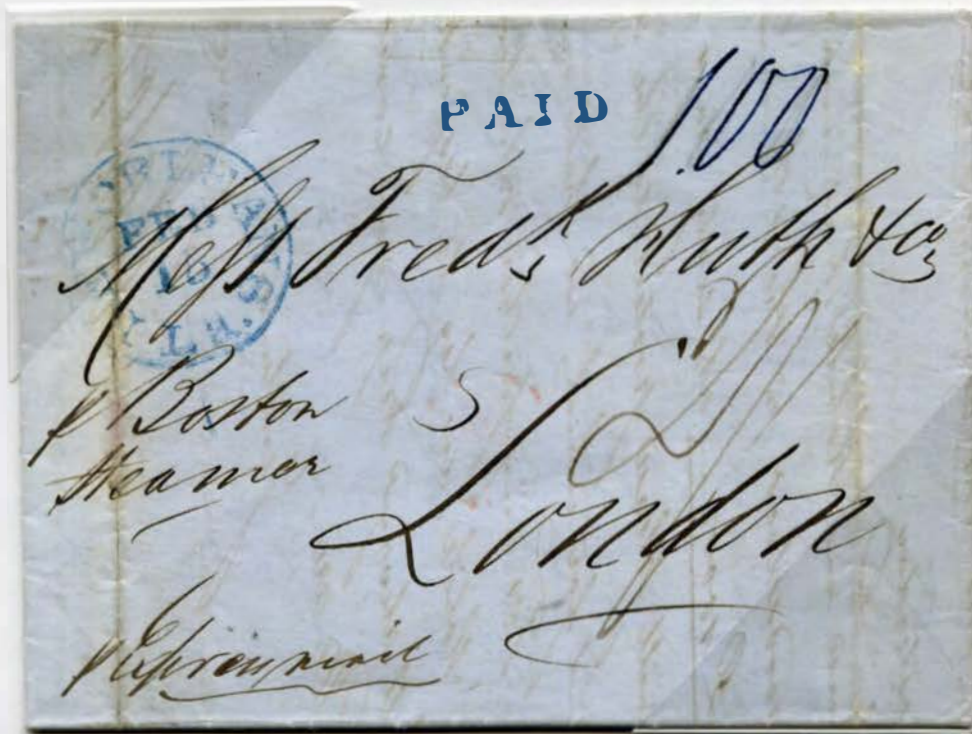 PAID 100
Messrs Fredk Huth & Co
p Boston
Steamer
London
p Express mail
FEB
16
LA.